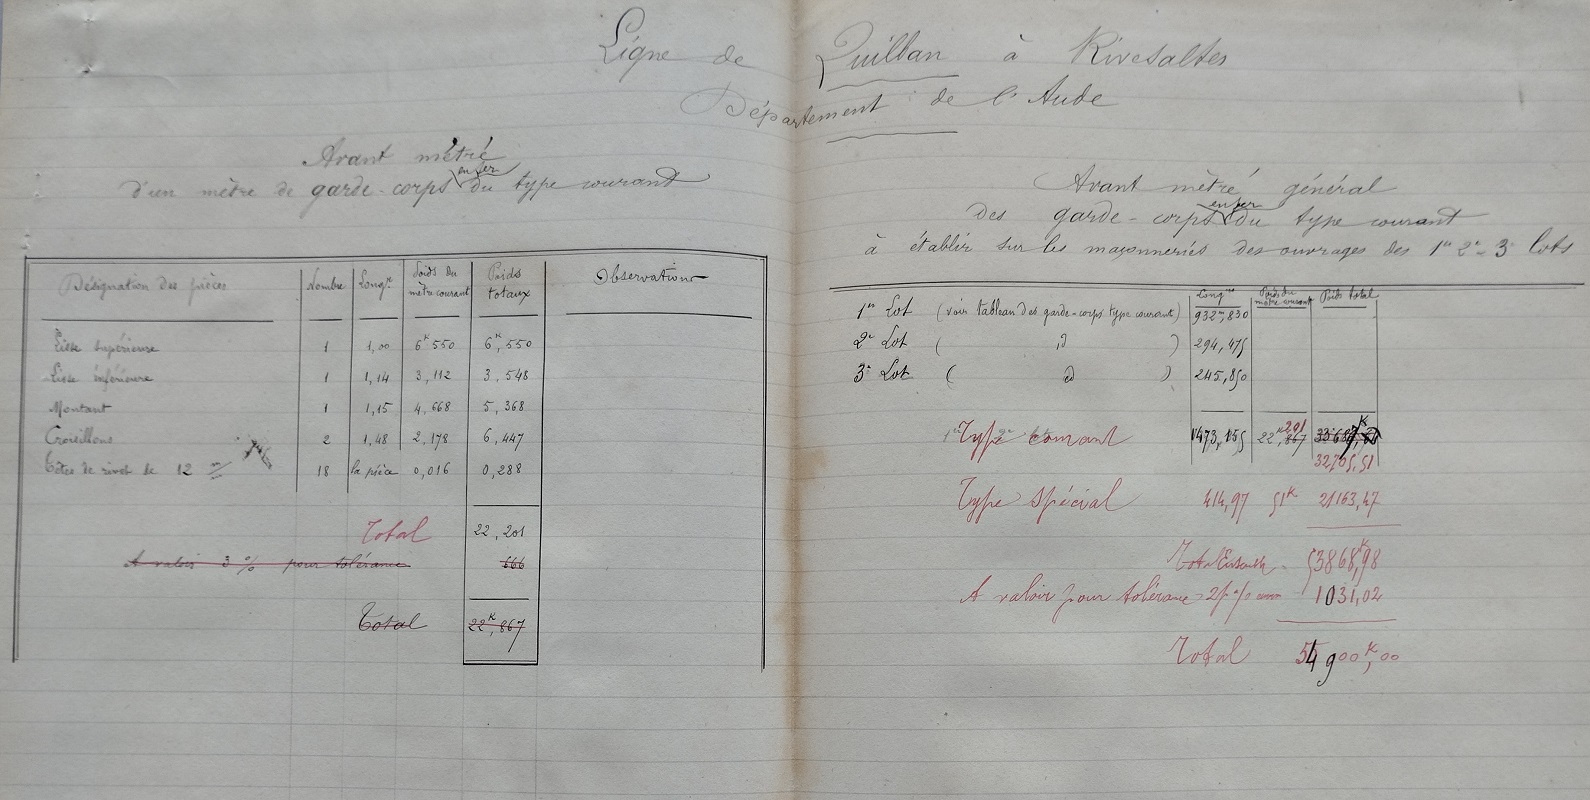 Ligne de Quillan à Rivesaltes
Département de l'Aude
Avant métré
d'un mètre de garde-corps en fer du type courant
Désignation des pièces Nombre Longr Poids du mètre courant Poids totaux Observations
Lisse supérieure 1 1,00 6K550 6K,550
Lisse inférieure 1 1,14 3,112 3,548
Montant 1 1,15 4,668 5,368
Croisillons 2 1,48 2,178 6,447
Têtes de rivet de 12 m/m 18 la pièce 0,016 0,288
Total 22,201
A valoir 3 % pour tolérance 666
Total 22K,867
Avant métré général
des garde-corps en fer du type courant
à établir sur les maçonneries des ouvrages des 1er 2e 3e lots
Longrs Poids du mètre courant Poids total
1er Lot (voir tableau des garde-corps type courant) 932m,830
2e Lot ( id ) 294,475
3e Lot ( id ) 245,850
Type courant 1473,155 22K,867 201
32705,51
Type spécial 414,97 51K 21163,47
53868K,98
A valoir pour tolérance 2 p % 1031,02
Total 54900K,00